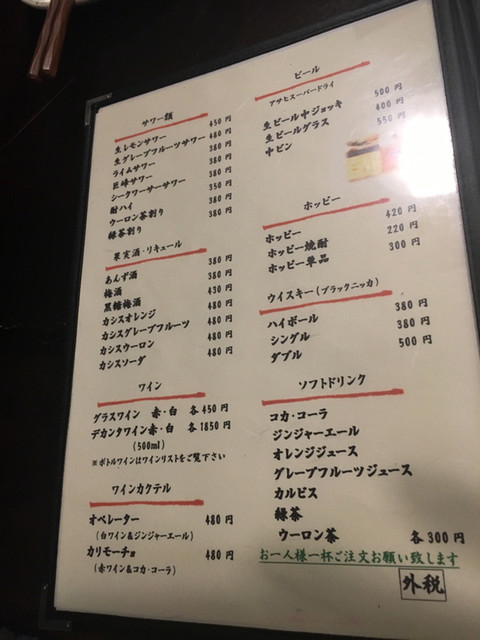 サワー類
生レモンサワー 450円
生グレープフルーツサワー 480円
ライムサワー 380円
巨峰サワー 380円
シークワーサーサワー 380円
酎ハイ 350円
ウーロン茶割り 380円
緑茶割り 380円
果実酒・リキュール
あんず酒 380円
梅酒 380円
黒糖梅酒 430円
カシスオレンジ 480円
カシスグレープフルーツ 480円
カシスウーロン 480円
カシスソーダ 480円
ワイン
グラスワイン 赤・白 各450円
デカンタワイン赤・白 各1850円
(500ml)
※ボトルワインはワインリストをご覧下さい
ワインカクテル
オペレーター 480円
(白ワイン&ジンジャーエール)
カリモーチョ 480円
(赤ワイン&コカ・コーラ)
ビール
アサヒスーパードライ
生ビール中ジョッキ 500円
生ビールグラス 400円
中ビン 550円
ホッピー
ホッピー 420円
ホッピー焼酎 220円
ホッピー単品 300円
ウイスキー(ブラックニッカ)
ハイボール 380円
シングル 380円
ダブル 500円
ソフトドリンク
コカ・コーラ
ジンジャーエール
オレンジジュース
グレープフルーツジュース
カルピス
緑茶
ウーロン茶 各300円
お一人様一杯ご注文お願い致します
外税